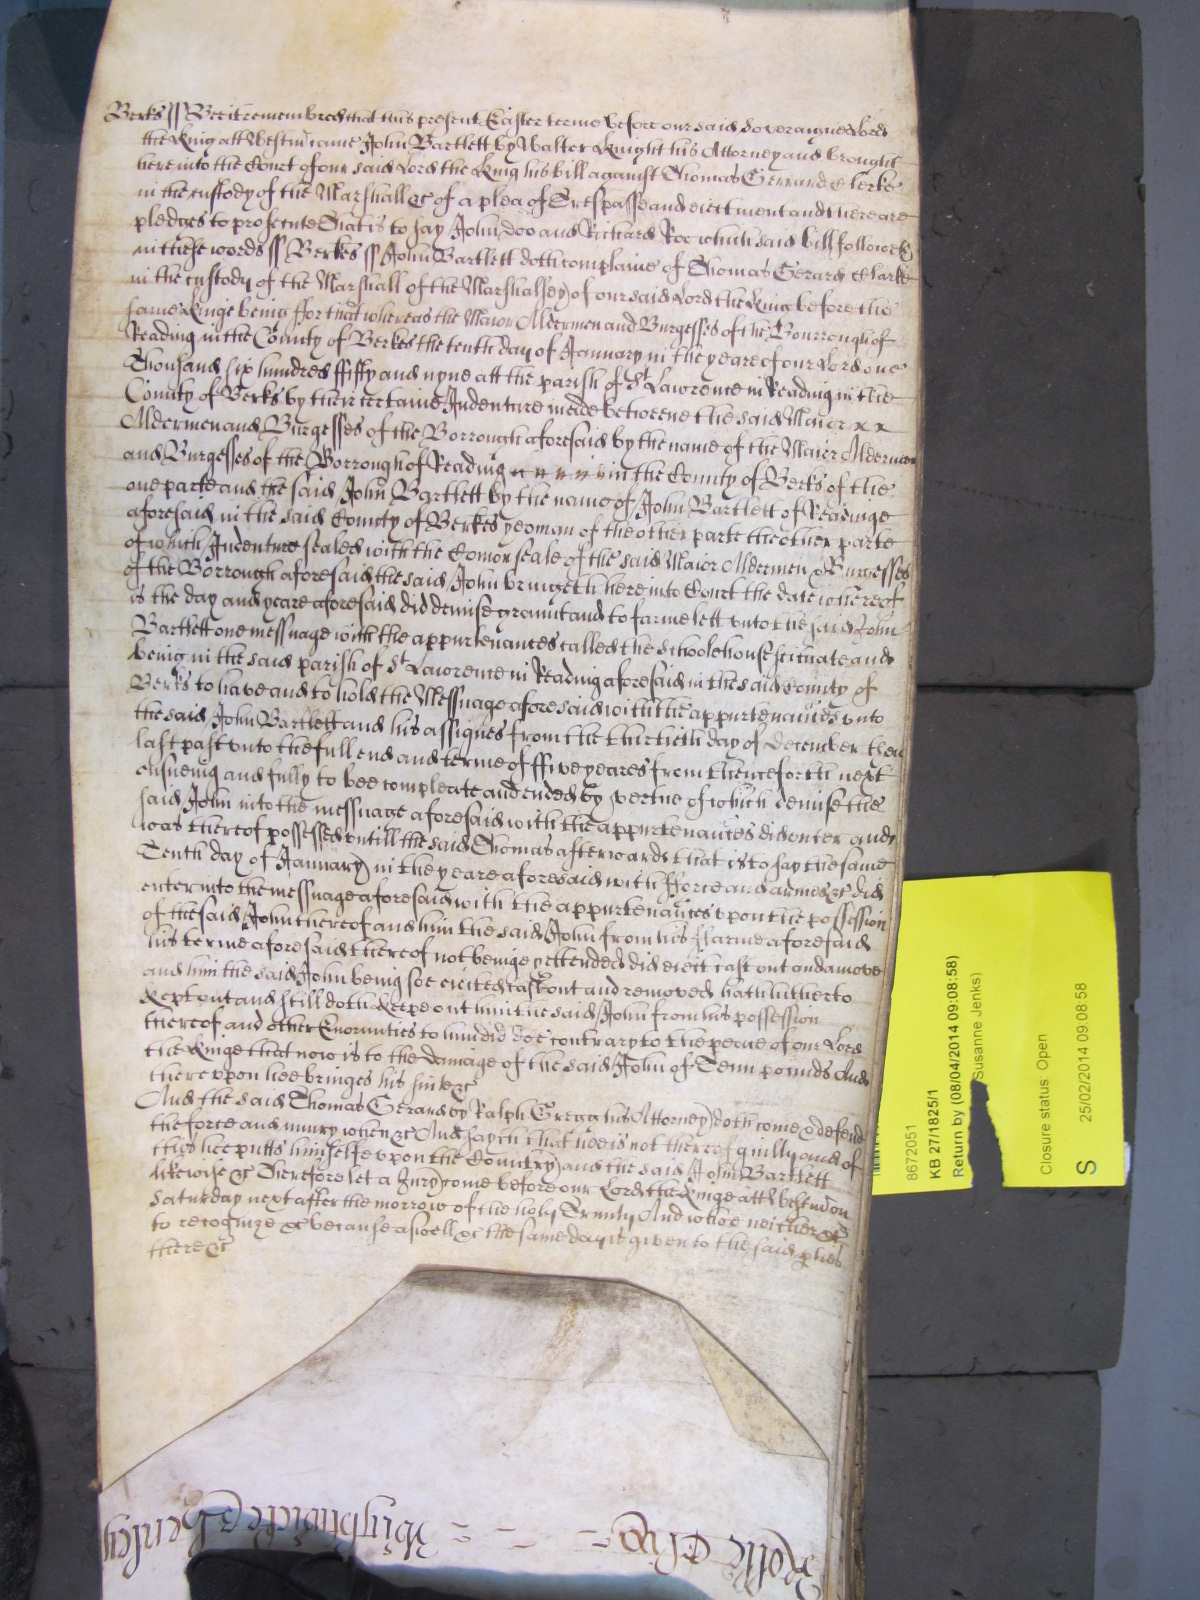 Berks ss Bee it remembred that this present Easter terme before our said Soveraigne Lord
the King att Westm came John Bartlett by Walter Knight his Attorney and brought
here into the Court of our said Lord the King his bill against Thomas Gerrard Clerke
in the custody of the Marshall &c of a plea of Trespasse and eiectment and there are
pledges to prosecute That is to say John Doo and Richard Roe which said bill followeth
in these words ss Berkes ss John Bartlett doth complaine of Thomas Gerard Clarke
in the custody of the Marshall of the Marshallsey of our said Lord the King before the
same Kinge being ffor that whereas the Maior Aldermen and Burgesses of the Bourrough of
Reading in the County of Berkes the tenth day of January in the yeare of our Lord one
Thousand six hundred ffifty and nyne att the parish of St Lawrence in Reading in the
County of Berks by their certaine Indenture made betweene the said Maior x x
Aldermen and Burgesses of the Borrough aforesaid by the name of the Maior Aldermen
and Burgesses of the Borrough of Reading in the County of Berks of the
one parte and the said John Bartlett by the name of John Bartlett of Readinge
aforesaid in the said County of Berkes yeoman of the other parte the other parte
of which Indenture sealed with the Comon seale of the said Maior Aldermen & Burgesses
of the Borrough aforesaid the said John bringeth here into Court the date whereof
is the day and yeare aforesaid did demise graunt and to farme lett unto the said John
Bartlett one messuage with the appurtenances called the Schoolehouse scituate and
being in the said parish of St Lawrence in Reading aforesaid in the said County of
Berks to have and to hold the Messuage aforesaid with the appurtenances unto
the said John Bartlett and his assignes from the thirtieth day of December then
last past unto the full end and terme of ffive yeares from thenceforth next
ensueing and fully to bee compleate and ended by vertue of which demise the
said John into the messuage aforesaid with the appurtenances did enter and
was thereof possessed untill the said Thomas afterwards that is to say the same
Tenth day of January in the yeare aforesaid with fforce and armes &c did
enter into the messuage aforesaid with the appurtenances upon the possession
of the said John thereof and him the said John from his ffarme aforesaid
his terme aforesaid thereof not beinge yett ended did eiect cast out and amove
and him the said John being soe eiected cast out and removed hath hitherto
kept out and still doth keepe out him the said John from his possession
thereof and other Enormities to him did doe contrary to the peace of our Lord
the Kinge that now is to the damage of the said John of Tenn pounds And
thereupon hee bringes his suite &c
And the said Thomas Gerard by Ralph Gregg his Attorney doth come & defend
the force and iniury when &c And sayth that hee is not thereof guilty and of
this hee putts himselfe upon the Countrey and the said John Bartlett
likewise &c Therefore let a Jury come before our Lord the Kinge att Westm on
Saturday next after the morrow of the holy Trinity And whoe neither &c
to recognize &c because aswell &c the same day is given to the said pties
there &c
8672051
KB 27/1825/1
Return by (08/04/2014 09:08:58)
Susanne Jenks)
Closure status: Open
S 25/02/2014 09:08:58